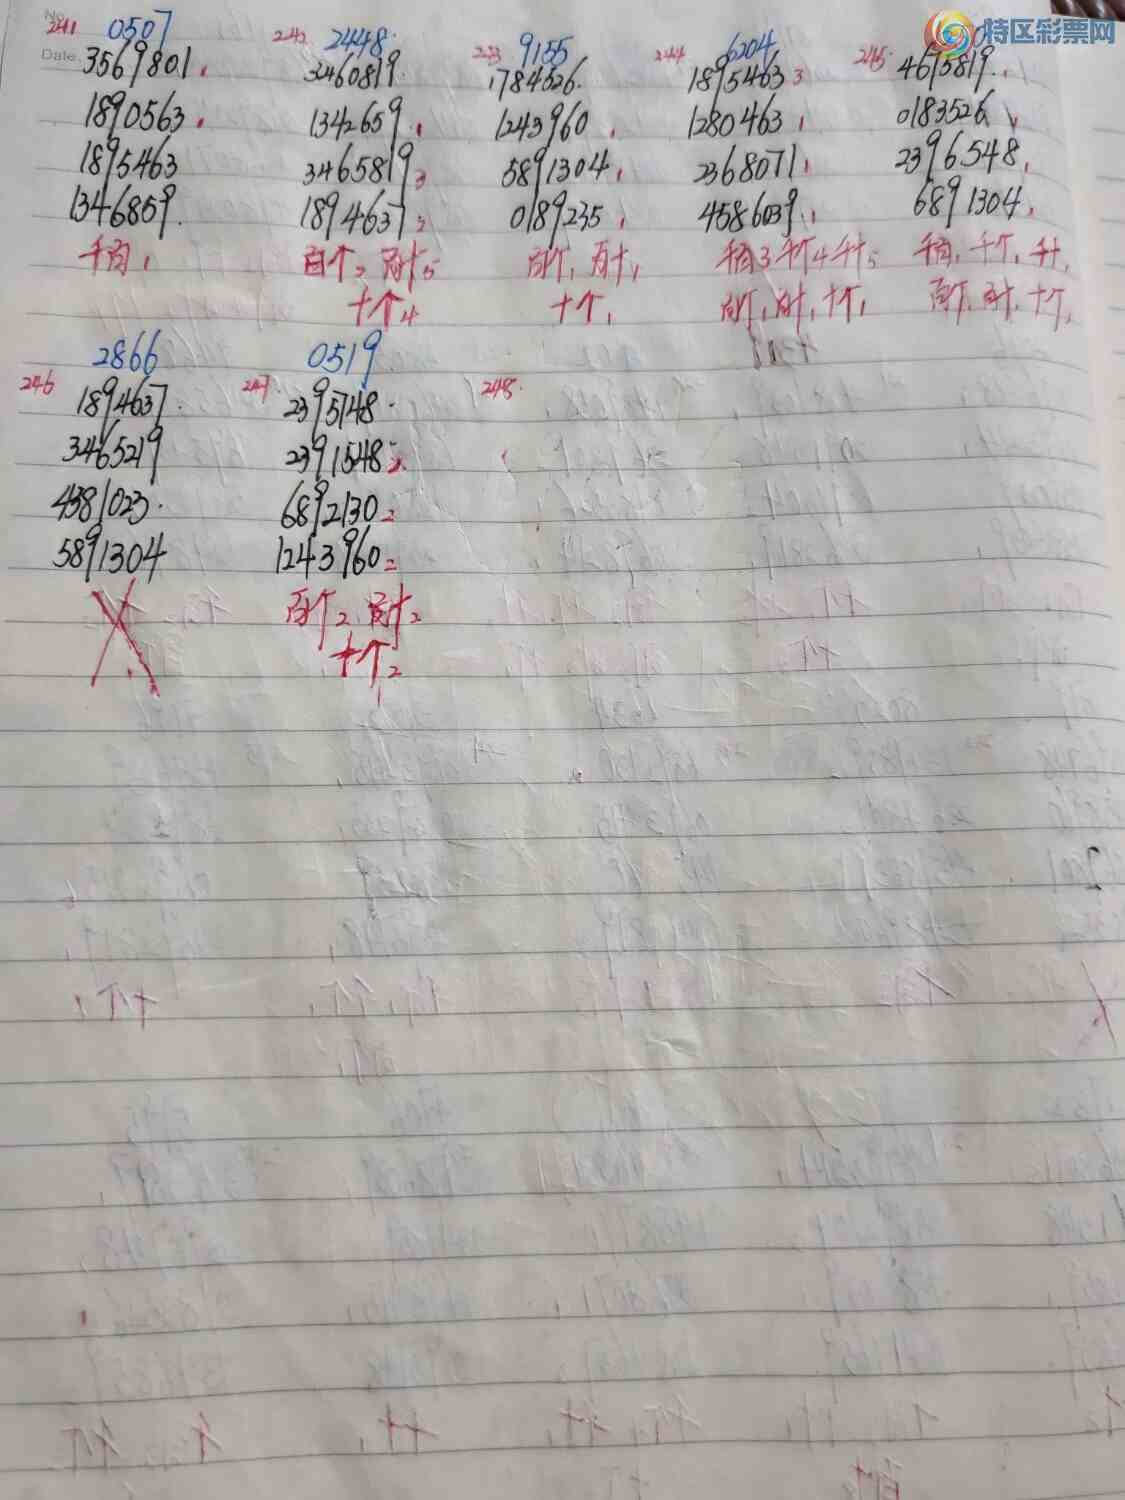 No.
Date.
特区彩票网
241 0507
3569801.
1890563.
1895463
1346859.
千百1
242 2448.
3460819.
1342659.1
3465819.3
1894637.2
百个2 百十5
十个4
9155
1784626.
1243960.1
5891304.1
0189235.1
百个1 百十1
十个1
244 6204
1895463 3
1280463 1
2368071 1
4586039.1
千百3 千个4 千十5
百个1 百十1 十个1
245
4695819.1
0183526.
2396548.
6891304.
千百1 千个1 千十1
百个1 百十1 十个1
246 2866
1894637.
3465219
4381023.
5891304
247 0519
2395748.
2391548 2
6892130 2
1243960 2
百个2 百十2
十个2
248.